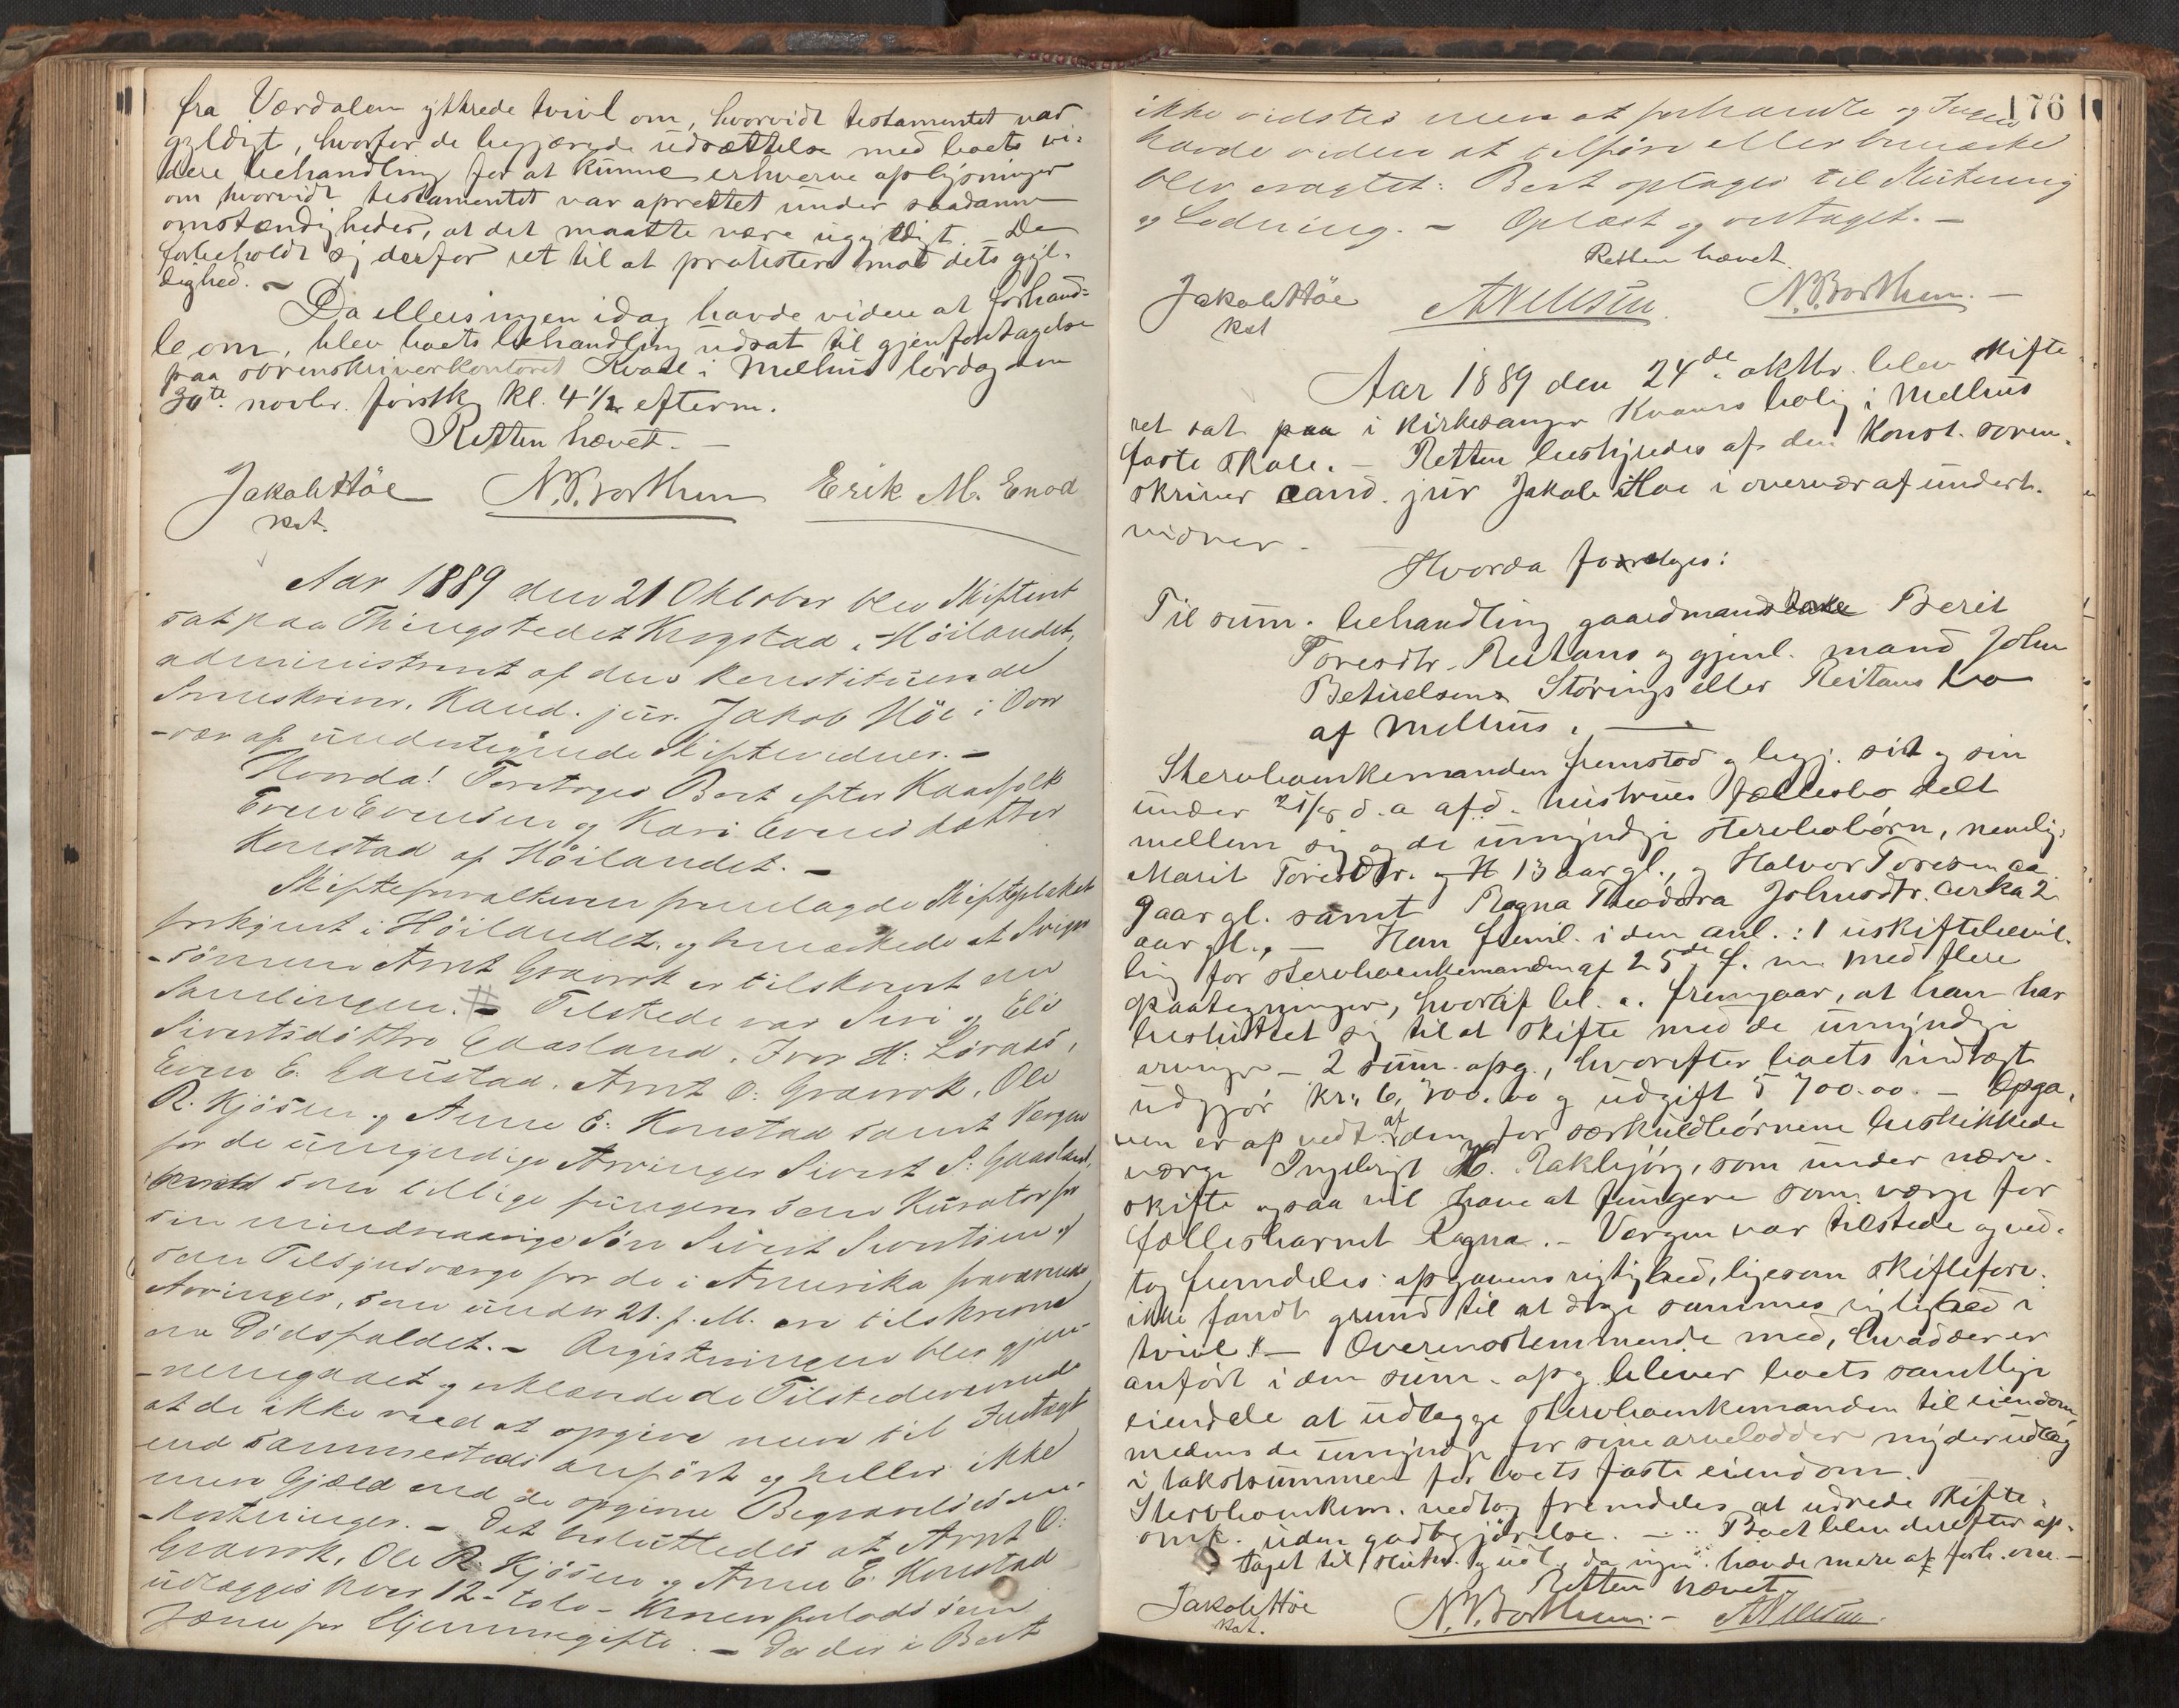 fra Værdalen yttrede tvivl om, hvorvidt testamentet var
gyldigt, hvorfor de begjærede udsættelse med boets vi-
dere behandling for at kunne erhverve oplysninger
om hvorvidt testamentet var oprettet under saadanne
omstændigheder, at det maatte være ugyldigt. De
forbeholdt sig derfor ret til at protestere mod dets gyl-
dighed. -
Da ellers ingen idag havde videre at forhand-
le om, blev boets behandling udsat til gjenforetagelse
paa sorenskriverkontoret Kvaal i Melhus lørdag den
30te novbr. førstk. kl. 4 1/2 efterm.
Retten hævet. -
Jakob Höe N. P. Borthen Erik M. Enod
kst.
Aar 1889 den 21 Oktober blev Skifteret
sat paa Thingstedet Krogstad i Höilandet,
administreret af den konstituerende
Sorenskriver, Kand. jur. Jakob Höe i Over
-vær af undertegnede Skiftevidner. -
Hvorda! Foretoges Boet efter Kaarfolk
Even Evensen og Kari Evensdatter
Konstad af Höilandet. -
Skifteforvalteren fremlagde Skifteplakat
forkyndt i Höilandet, og bemærkede at
-sønnen Arnt Grævrok er tilskrevet om
Samlingen. # - Tilstede var Siri og Eli
Sivertsdøttre Gaasland, Iver H: Løvaas,
Even E. Gaustad, Arnt O: Grævrok, Ole
R. Kjøsen og Anne E: Konstad samt Værgen
for de umyndige Arvinger Sivert S: Gaasland,
som tillige fungerer som Kurator for
sin mindreaarige Søn Sivert Sivertsen og
som Tilsynsværge for de i Amerika fraværende
Arvinger, som under 21. f. M. er tilskrevne
om Dødsfaldet. - Registreringen blev gjen-
-nemgaaet og erklærede de Tilstedeværende
at de ikke veed at opgive mere til Indtægt
end sammesteds anført og heller ikke
mere Gjæld end de opgivne Begravelsesom-
-kostninger. - Det besluttedes at Arnt O:
Grævrok, Ole R. Kjøsen og Anne E. Konstad
udlægges hver 12 - tolv - Kroner forlods som
Jævn for Hjemmegifte. - Da der i Boet
176
ikke vidstes mere at forhandle og Ingen
havde videre at tilføre eller bemærke
blev eragtet: Boet optages til Slutning
og Lodning. - Oplæst og vedtaget. -
Retten hævet.
Jakob Höe A Nilsen N. P. Borthen. -
kst
Aar 1889 den 24de oktbr. blev skifte-
ret sat paa i kirkesanger Kvams bolig i Melhus
faste skole. - Retten bestyredes af den konst. soren-
skriver cand. jur Jakob Höe i overvær af undert.
vidner -
Hvorda foretoges:
Til sum. behandling gaardmands Berit
Toresdtr. Reitans og gjenl. mand John
Betuelsens Størings eller Reitans bo
af Melhus. -
Stervboenkemanden fremstod og begj. sit og sin
under 21/8 d. a afd. hustrues fællesbo delt
mellem sig og de umyndige stervbobørn, nemlig:
Marit Toresdtr. 13 aar gl., og Halvor Toresen
9 aar gl. samt Ragna Theodora Johnsdtr. cirka 2
aar gl., - Han freml. i den anl.: 1 uskiftebevil-
ling for stervboenkemanden af 25de f. m. med flere
paategninger, hvoraf bl. a. fremgaar, at han har
besluttet sig til at skifte med de umyndige
arvinger - 2 sum. opg., hvorefter boets indtægt
udgjør kr. 6,300.00 og udgift 5 700.00. - Opga-
ven er af vedt. af den for særkuldbørnene beskikkede
værge Ingebrigt H. Rakbjørg, som under nærv.
skifte ogsaa vil have at fungere som værge for
fællesbarnet Ragna. - Vergen var tilstede og ved-
tog fremdeles opgavens rigtighed, ligesom skifteforv.
ikke fandt grund til at drage sammes rigtighed i
tvivl. - Overensstemmende med, hvad der er
anført i den sum. opg. bliver boets samtlige
eiendele at udlægge stervboenkemanden til eiendom,
medens de umyndige for sine arvelodder nyder udlæg
i takstsummen for boets faste eiendom.
Stervboenkem. vedtog fremdeles at udrede skifte-
omk. uden godtgjörelse. - Boet blev derefter op-
taget til slutn. og udl., da ingen havde mere at forh. om. -
Retten hævet.
Jakob Höe N. P. Borthen. - A Nilsen.
kst.